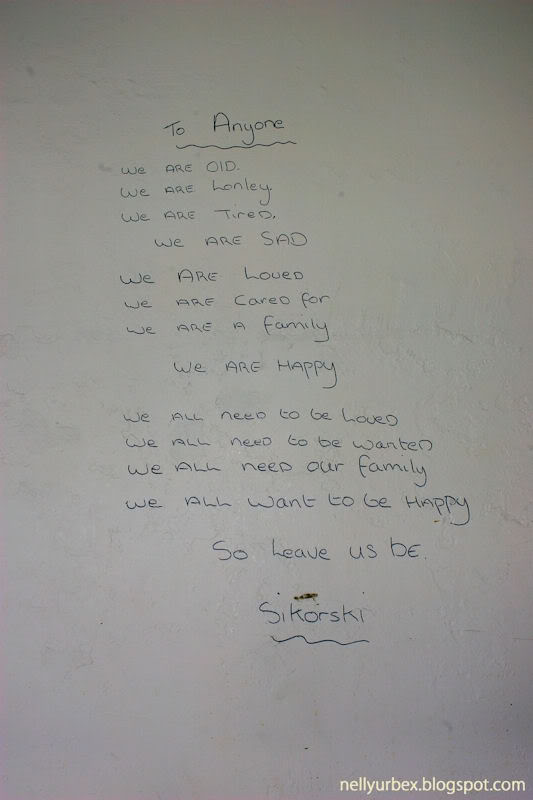 To Anyone
we ARE OlD.
we ARE Lonley.
we ARE Tired.
we ARE SAD
we ARE Loved
we ARE cared for
we ARE A family
we ARE HAppy
we ALL need to be Loved
we ALL need to be wanted
we ALL need our family
we ALL want to be HAppy
So Leave us be.
Sikorski
nellyurbex.blogspot.com